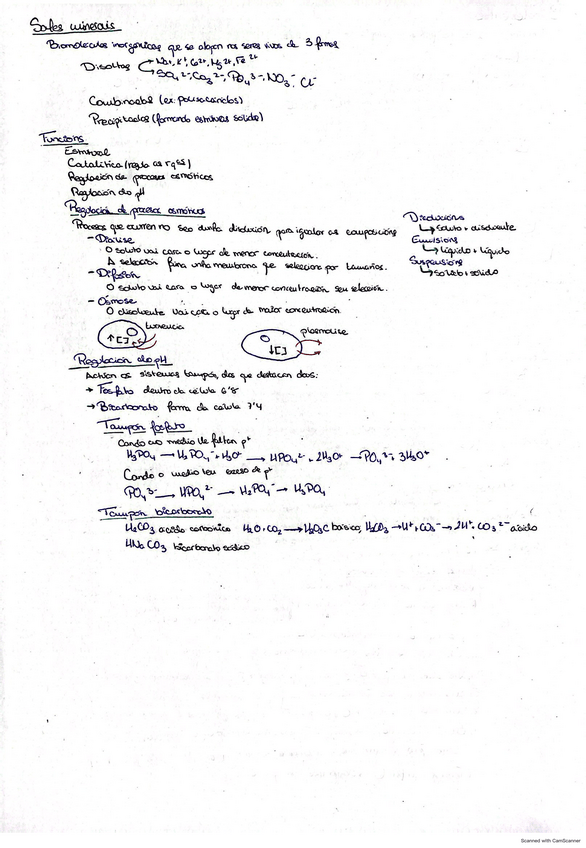 Sales minerais
Biomoléculas inorgánicas que se atopan nos seres vivos de 3 formas
Disoltas Na+, K+, Ca2+, Mg2+, Fe2+
SO4 2-, CO3 2-, PO4 3-, NO3-, Cl-
Combinadas (ex: polisacáridos)
Precipitadas (formando estruturas solidas)
Funcións
Estrutural
Catalítica (regla as rqss)
Regulación de procesos osmóticos
Regulación do pH
Regulación de procesos osmóticos
Procesos que ocurren no seo dunha disolución para igualar as composicións
- Diálise
O soluto vai cara o lugar de menor concentración.
A selección fai unha membrana que selecciona por tamaños.
- Difusión
O soluto vai cara o lugar de menor concentración sen selección.
- Osmose
O disolvente vai cara o lugar de maior concentración
Disolucións
↳ soluto + disolvente
Emulsións
↳ líquido + líquido
Suspensións
↳ sólido + sólido
turxencia
↑[ ]
plasmolise
↓[ ]
Regulación do pH
Actúan os sistemas tampón, dos que destacan dous:
→ Fosfato dentro da célula 6'8
→ Bicarbonato fora da célula 7'4
Tampón fosfato
Cando ao medio lle faltan p+
H3PO4 → H2PO4- + H3O+ → HPO4 2- + 2H3O+ → PO4 3- + 3H3O+
Cando o medio ten exceso de p+
PO4 3- → HPO4 2- → H2PO4- → H3PO4
Tampón bicarbonato
H2CO3 ácido carbónico H2O + CO2 → H2O3C básico, H2CO3 → H+ + CO3- → 2H+ + CO3 2- ácido
HNaCO3 bicarbonato sódico
Scanned with CamScanner